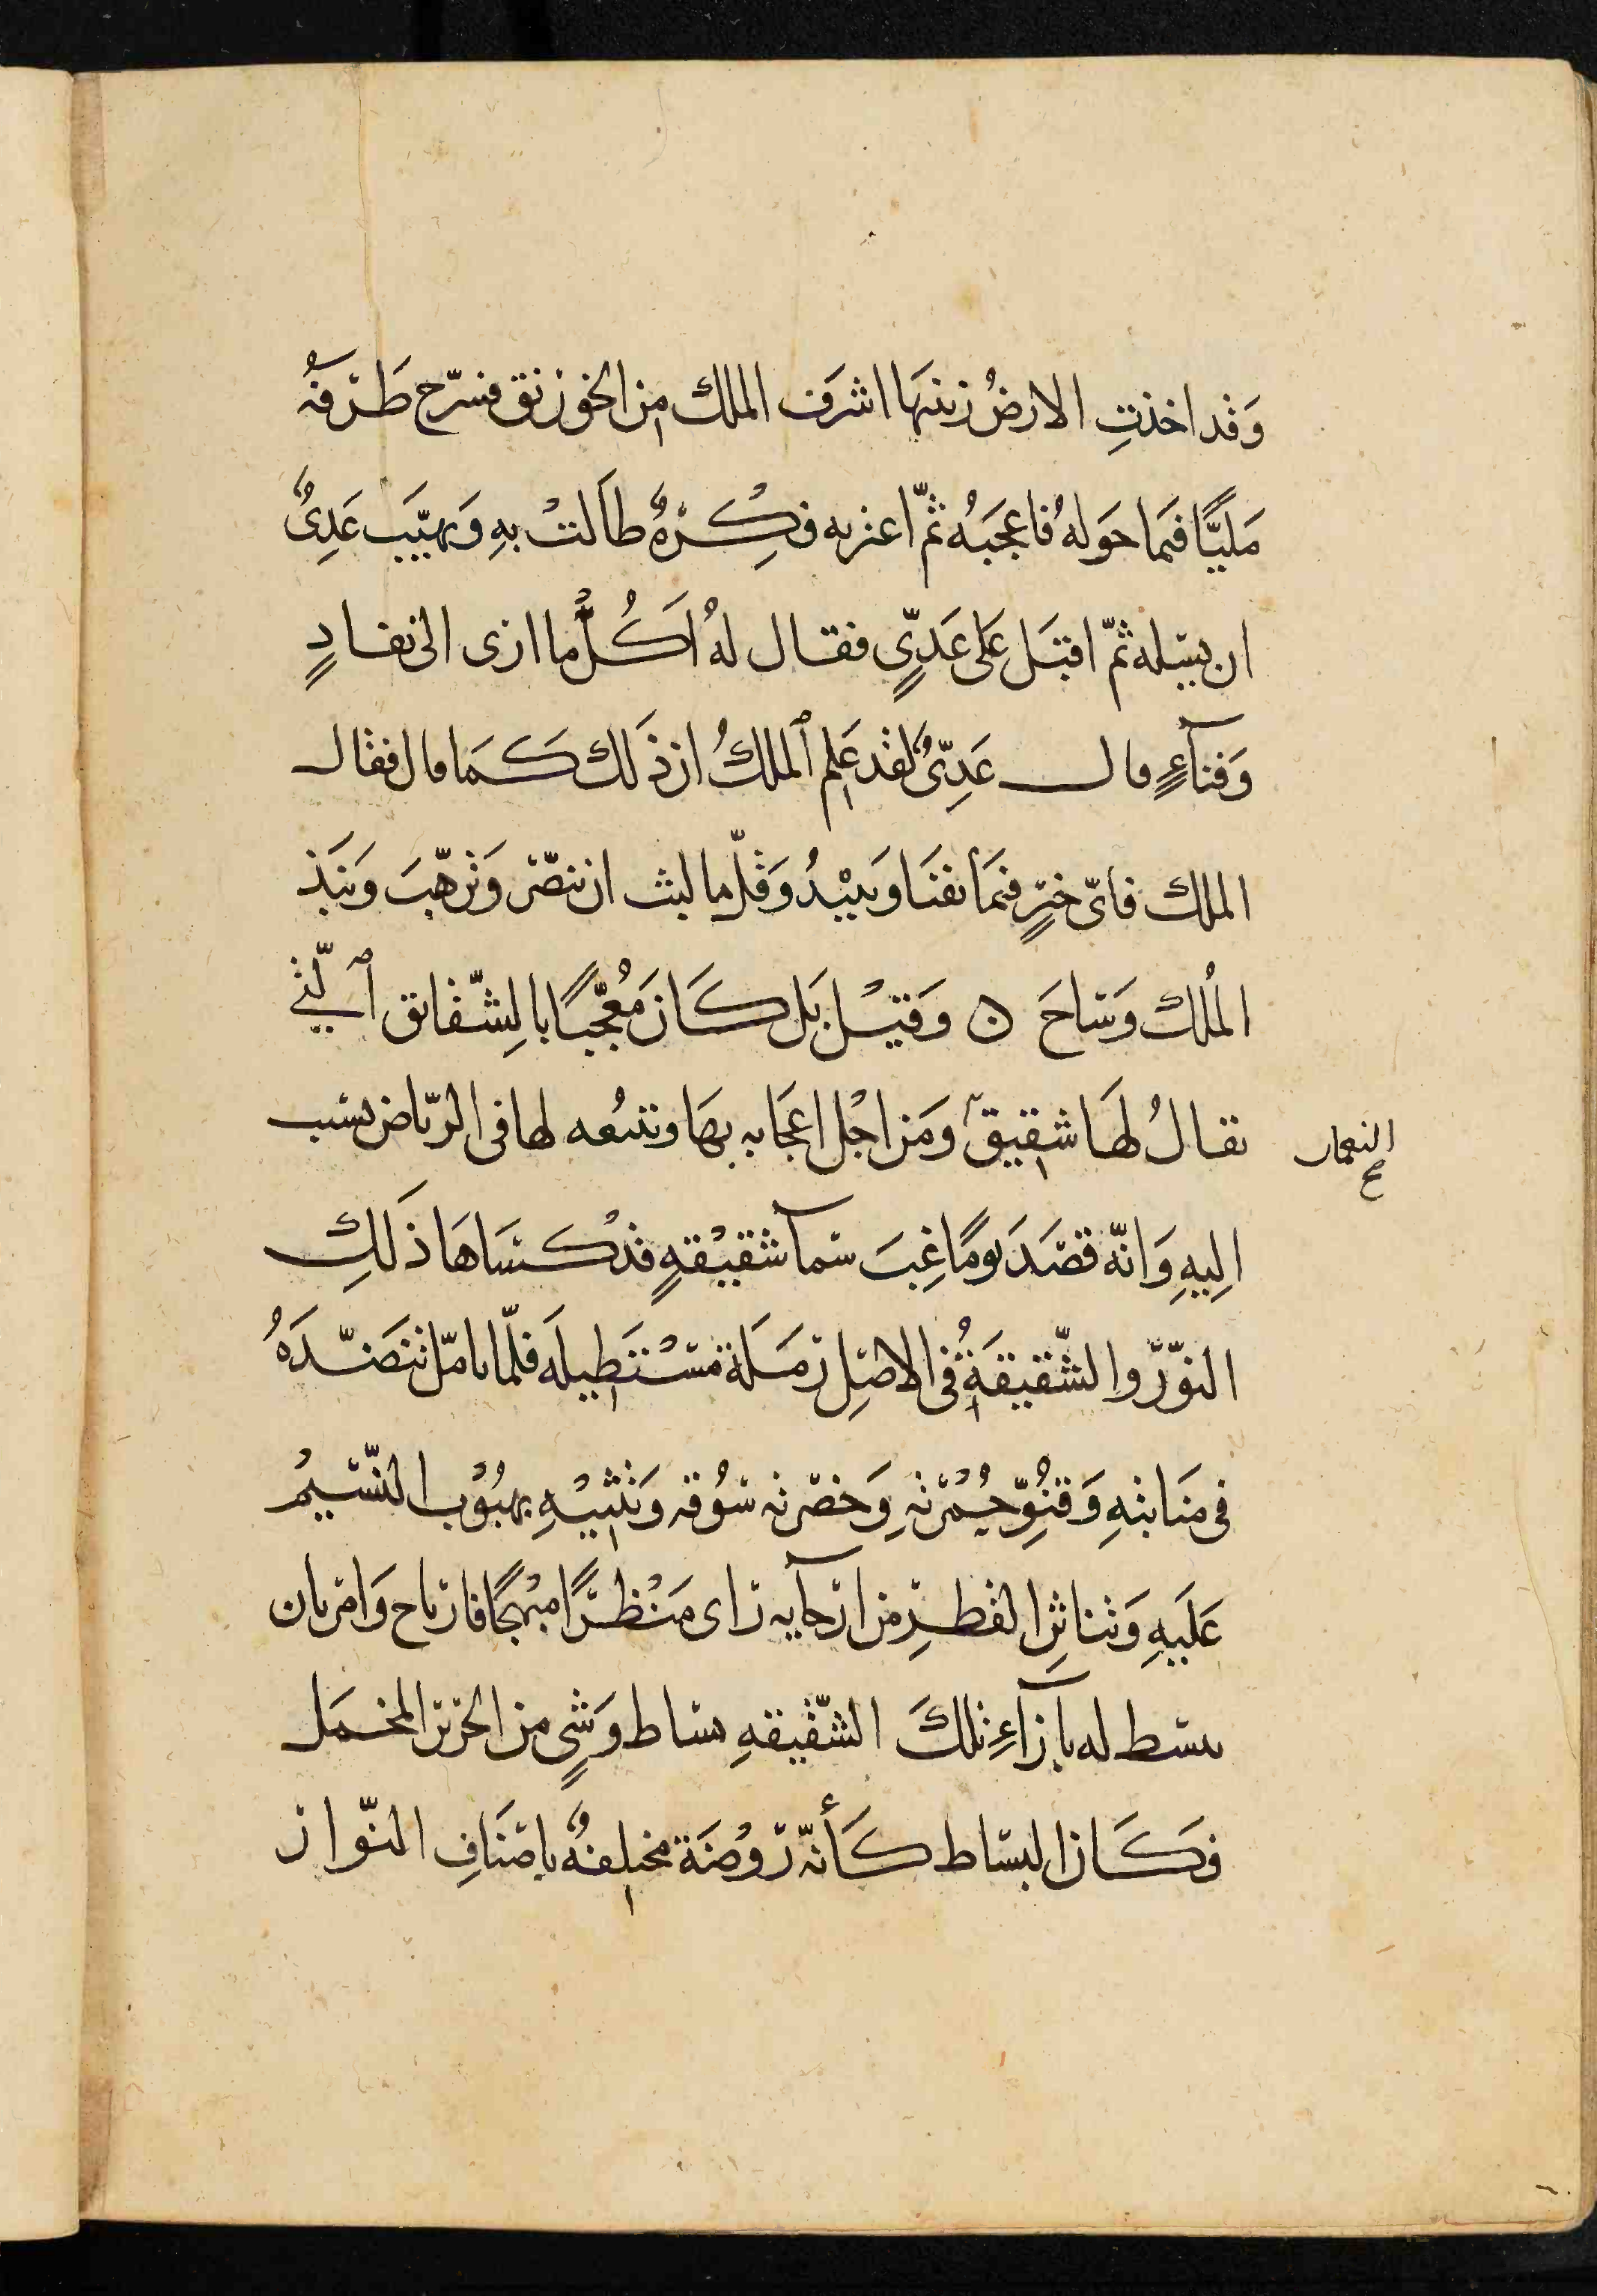 وَقد اخذتِ الارضُ زينتهَا اشرَف الملك من الخورنق فسرّح طَرْفهُ
مَليًّا فيمَا حَولهُ فاعجَبهُ ثمّ اعتربه فِكِـرْةٌ طاَلتْ بهِ وَتهيَّبَ عَدِىٌّ
ان يسٔله ثمّ اقبَل عَلى عَدِىٍّ فقال لهُ اَكُلُّ ما ارى الى نفادٍ
وَفنآءٍ قال عَدِىٌّ لقد عَلِم ٱلملكُ ان ذَلك كَمَا قال فقال
الملك فاىّ خيرٍ فيمَا يفنَا ويَبيْدُ وَقلّما لبث ان تنصّر وَترهّبَ وَنبَذ
المُلك وَسَاحَ ن وَقيْل بَل كَانَ مُعجَبًا بالشّقائق ٱلّتي
يقالُ لهَا شقيق ومَن اجْل اعجَابه بهَا وتتبُعه لها فى الرّياض نسب
النعمان صح
اليهِ وَانّه قصَدَ يومًا غِبَ سمآ شقيْقةٍ قدْ كسَاهَا ذَلكِ
النوْرُ والشّقيقَةُ فى الاصْلِ رَمَلة مسْتَطيلَه فلمّا تامّل تنَضّدَهُ
فى منَابتهِ وَقنوِّ حُمْرتهِ وَخضرته سُوقه وَتثنيْهِ بهبُوْب النّسيْم
عَليهِ وَتناثرِ القطرِ من ارْجآيه رَاى مَنْظرًا مبْهجًا فارتاح وَامر بان
يبسَط له بإزآءِ تلكَ الشّقيقهِ بسَاط وَشىٍ من الحرير المخمَل
فكَان البسَاط كَأنّه رَوْضة مختلفةٌ باصنَافِ النّوار